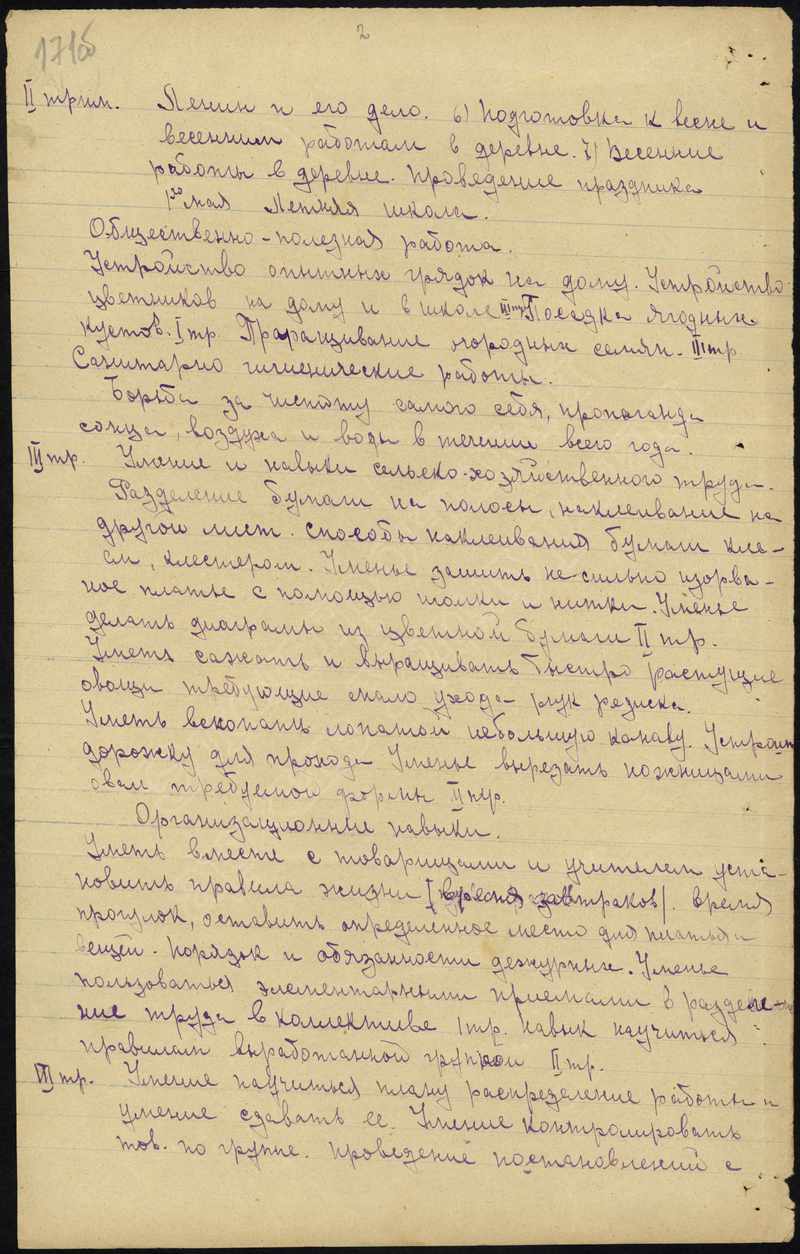 2
171об
II трим. Ленин и его дело. 6) Подготовка к весне и
весенним работам в деревне. 7) Весенние
работы в деревне. Проведение праздника
1го мая Летняя школа.
Общественно-полезная работа.
Устройство опытных грядок на дому. Устройство
цветников на дому и в школе III тр Посадка ягодных
кустов. I тр. Праращивание огородных семян. III тр
Санитарно гигиенические работы.
Борьба за чистоту самого себя, пропоганда
сонца, воздуха и воды в течении всего года.
III тр. Умение и навыки сельско-хозяйственного труда.
Разделение бумаги на полосы, наклеивание на
другой лист. Способы наклеивания бумаги кле-
ем, клестером. Уменье зашить не сильно изорва-
ное платье с помощью иголки и нитки. Уменье
делать диаграмы из цветной бумаги II тр.
Уметь сажать и выращивать быстро растущие
овощи требующие мало ухода лук редиска.
Уметь вскопать лопатой небольшую канаву. Устроить
дорожку для прохода Уменье вырезать ножницами
овал требуемой формы II тр.
Организационные навыки.
Уметь вместе с товарищами и учителем уста-
новить правила жизни [время завтраков]. Время
прогулок, оставить определенное место для платья и
вещей. Порядок и обязанности дежурных. Уменье
пользоваться элементарными приемами в разделе-
ние труда в коллективе I тр. навык научиться
правилам выработанной группой II тр.
III тр. Умение научиться плану распределение работы и
умение сдавать ее. Умение контролировать
тов. по группе. Проведение постановлений с